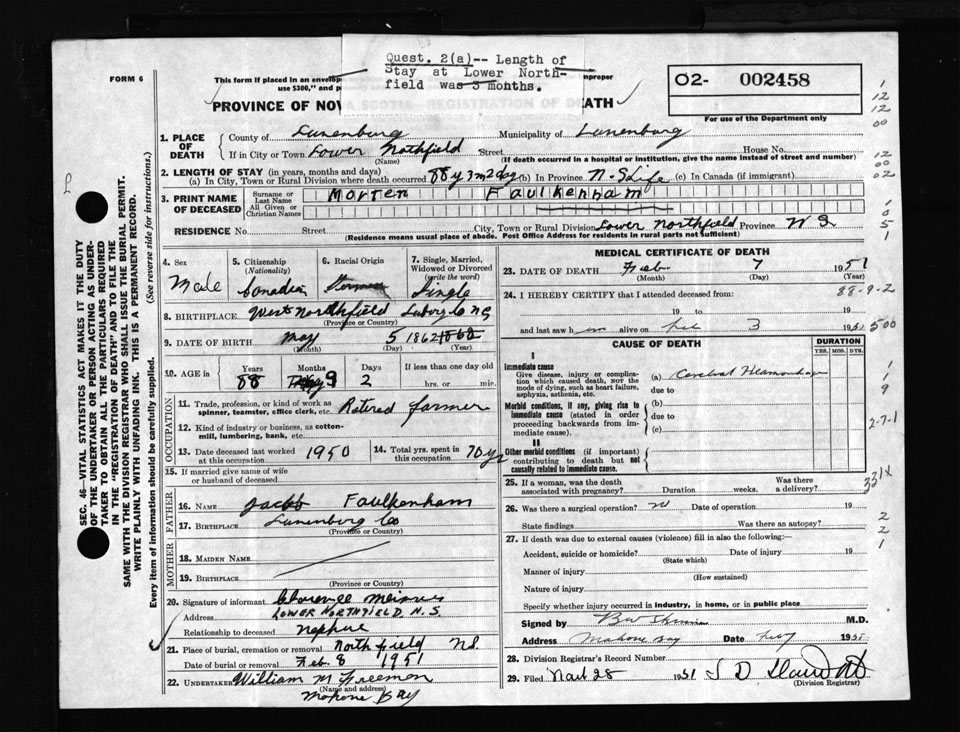 FORM 6
This form if placed in an envelop
use $300," and p
Quest. 2(a)-- Length of
Stay at Lower North-
field was 3 months.
improper
O2- 002458
PROVINCE OF NOVA SCOTIA—REGISTRATION OF DEATH
For use of the Department only
1. PLACE OF DEATH
County of Lunenburg Municipality of Lunenburg
If in City or Town Lower Nothfield Street House No.
(Name) (If death occurred in a hospital or institution, give the name instead of street and number)
2. LENGTH OF STAY (in years, months and days)
(a) In City, Town or Rural Division where death occurred 88y 3m 2day (b) In Province N.S. Life (c) In Canada (if immigrant)
3. PRINT NAME OF DECEASED
Surname or Last Name Morten Faulkenham
All Given or Christian Names
RESIDENCE No. Street City, Town or Rural Division Lower Northfield Province N S
(Residence means usual place of abode. Post Office Address for residents in rural parts not sufficient)
4. Sex
Male
5. Citizenship
(Nationality)
Canadian
6. Racial Origin
German
7. Single, Married,
Widowed or Divorced
(write the word)
Single
8. BIRTHPLACE West Northfield Luborg Co NS
(Province or Country)
9. DATE OF BIRTH May 5 1862
(Month) (Day) (Year)
10. AGE in Years Months Days If less than one day old
88 9 2 hrs. or min.
OCCUPATION
11. Trade, profession, or kind of work as
spinner, teamster, office clerk, etc. Retired farmer
12. Kind of industry or business, as cotton-
mill, lumbering, bank, etc.
13. Date deceased last worked
at this occupation. 1950
14. Total yrs. spent in
this occupation. 70 yrs
15. If married give name of wife
or husband of deceased
FATHER
16. Name Jacob Faulkenham
17. BIRTHPLACE Lunenburg Co
(Province or Country)
MOTHER
18. MAIDEN NAME
19. BIRTHPLACE
(Province or Country)
20. Signature of informant
Address LOWER NORTHFIELD, N.S.
Relationship to deceased Nephue
21. Place of burial, cremation or removal Northfield NS.
Date of burial or removal Feb. 8 1951
22. UNDERTAKER William M Freeman
(Name and address)
Mahone Bay
MEDICAL CERTIFICATE OF DEATH
23. DATE OF DEATH Feb 7 1951
(Month) (Day) (Year)
24. I HEREBY CERTIFY that I attended deceased from:
88-9-2
19 to 19
and last saw him alive on Feb 3 1951
500
CAUSE OF DEATH
DURATION
YRS. MOS. DYS.
I
Immediate cause
Give disease, injury or complica-
tion which caused death, NOT the
mode of dying, such as heart failure,
asphyxia, asthenia, etc.
(a) Cerebral Heamorrhage
due to
Morbid conditions, if any, giving rise to
immediate cause (stated in order
proceeding backwards from im-
mediate cause).
(b)
due to
(c)
II
Other morbid conditions (if important)
contributing to death but not
causally related to immediate cause.
2-7-1
331X
25. If a woman, was the death
associated with pregnancy? Duration weeks. Was there
a delivery?
26. Was there a surgical operation? no Date of operation 19
State findings Was there an autopsy?
27. If death was due to external causes (violence) fill in also the following:—
Accident, suicide or homicide? Date of injury 19
(State which)
Manner of injury
(How sustained)
Nature of injury
Specify whether injury occurred in industry, in home, or in public place
Signed by M.D.
Address Mahone Bay Date 1951
28. Division Registrar's Record Number
29. Filed 28 1951
(Division Registrar)
SEC. 46—VITAL STATISTICS ACT MAKES IT THE DUTY
OF THE UNDERTAKER OR PERSON ACTING AS UNDER-
TAKER TO OBTAIN ALL THE PARTICULARS REQUIRED
IN THE "REGISTRATION OF DEATH" AND TO FILE THE
SAME WITH THE DIVISION REGISTRAR WHO SHALL ISSUE THE BURIAL PERMIT.
WRITE PLAINLY WITH UNFADING INK. THIS IS A PERMANENT RECORD.
Every item of information should be carefully supplied. (See reverse side for instructions.)